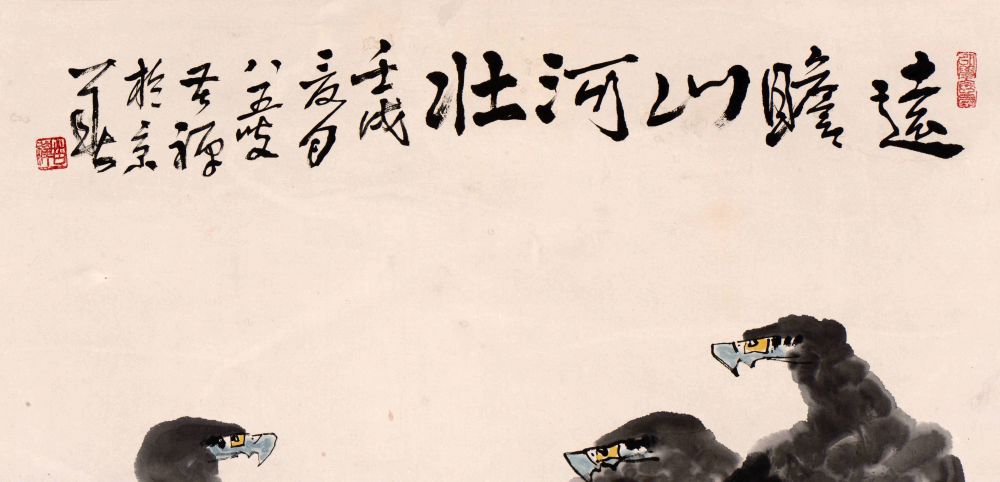 遠瞻山河壯
壬戌
夏月
八五叟
苦禪
於京
華